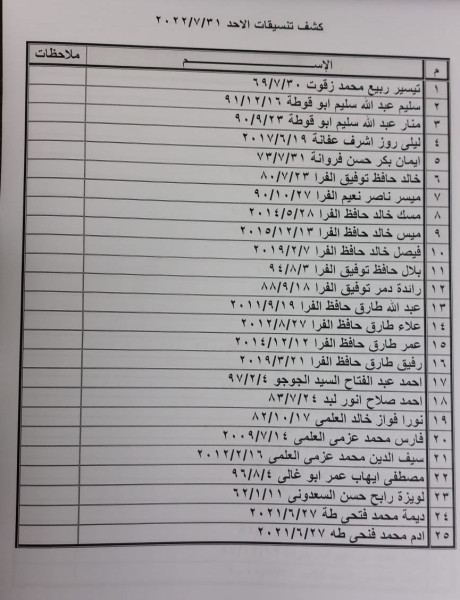 كشف تنسيقات الاحد ٢٠٢٢/٧/٣١
م الإســـــم ملاحظات
١ تيسير ربيع محمد زقوت ٦٩/٧/٣٠
٢ سليم عبد الله سليم ابو قوطة ٩١/١٢/١٦
٣ منار عبد الله سليم ابو قوطة ٩٠/٩/٢٣
٤ ليلى روز اشرف عفانة ٢٠١٧/٦/١٩
٥ ايمان بكر حسن فروانة ٧٣/٧/٣١
٦ خالد حافظ توفيق الفرا ٨٠/٧/٢٣
٧ ميسر ناصر نعيم الفرا ٩٠/١٠/٢٧
٨ مسك خالد حافظ الفرا ٢٠١٤/٥/٢٨
٩ ميس خالد حافظ الفرا ٢٠١٥/١٢/١٣
١٠ فيصل خالد حافظ الفرا ٢٠١٩/٢/٧
١١ بلال حافظ توفيق الفرا ٩٤/٨/٣
١٢ رائدة دمر توفيق الفرا ٨٨/٩/١٨
١٣ عبد الله طارق حافظ الفرا ٢٠١١/٩/١٩
١٤ علاء طارق حافظ الفرا ٢٠١٢/٨/٢٧
١٥ عمر طارق حافظ الفرا ٢٠١٤/١٢/١٢
١٦ رفيق طارق حافظ الفرا ٢٠١٩/٣/٢١
١٧ احمد عبد الفتاح السيد الجوجو ٩٧/٢/٤
١٨ احمد صلاح انور لبد ٨٣/٧/٢٤
١٩ نورا فواز خالد العلمي ٨٢/١٠/١٧
٢٠ فارس محمد عزمي العلمي ٢٠٠٩/٧/١٤
٢١ سيف الدين محمد عزمي العلمي ٢٠١٢/٢/١٦
٢٢ مصطفى ايهاب عمر ابو غالي ٩٦/٨/٤
٢٣ لويزة رابح حسن السعدوني ٦٢/١/١١
٢٤ ديمة محمد فتحي طة ٢٠٢١/٦/٢٧
٢٥ ادم محمد فتحي طه ٢٠٢١/٦/٢٧